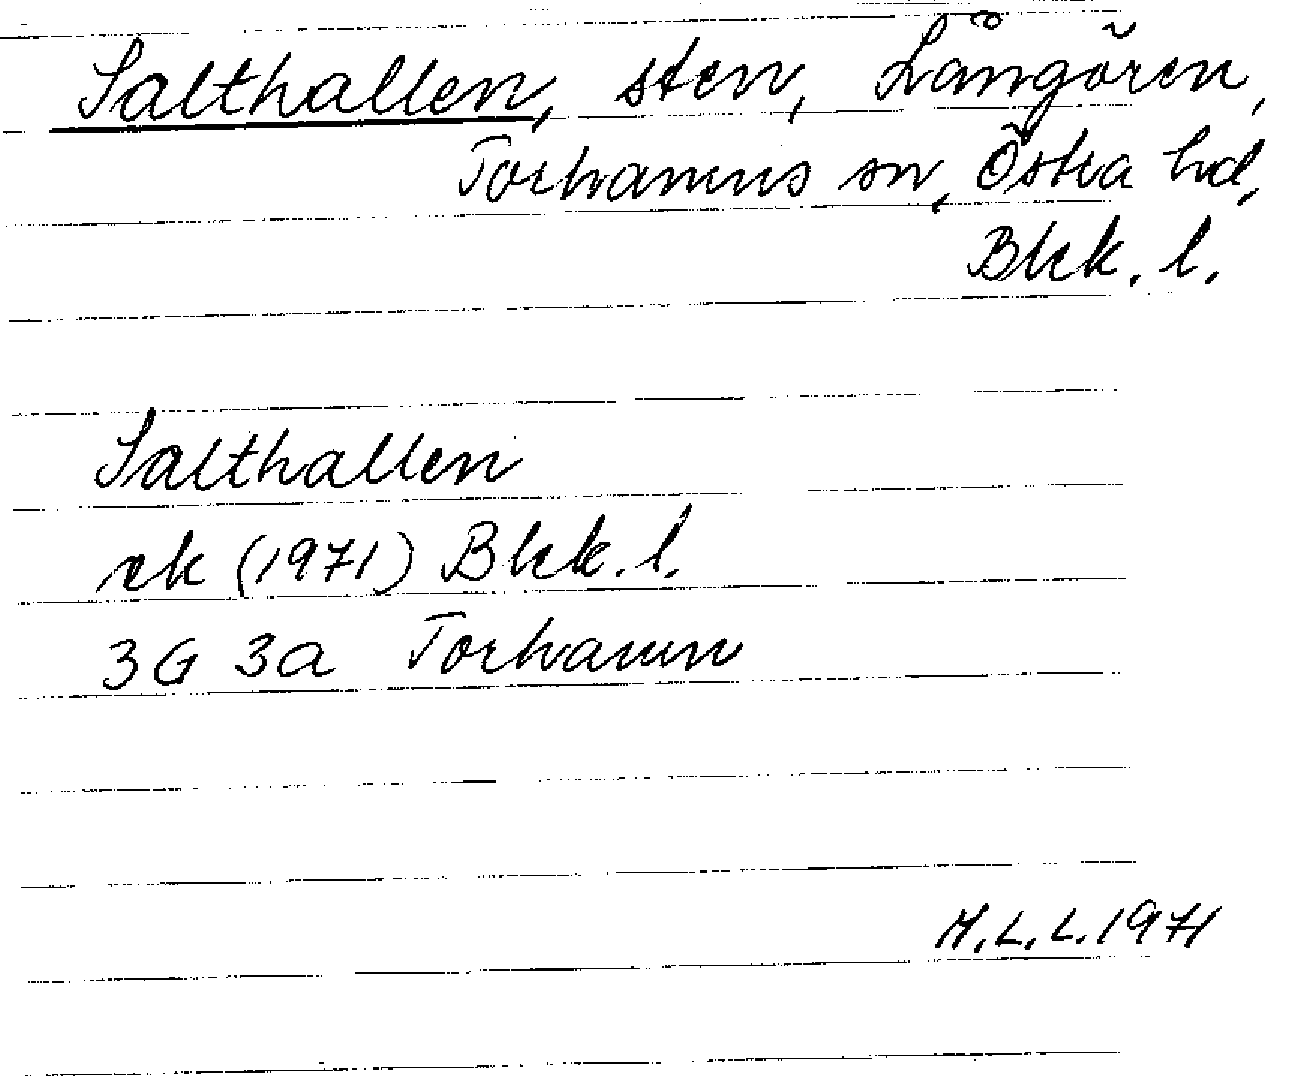 Salthallen, sten, Långören,
Torhamns sn, Östra hd,
Blek. l.
Salthallen
ek (1971) Blek. l.
3G 3a Torhamn
M.L.L. 1971